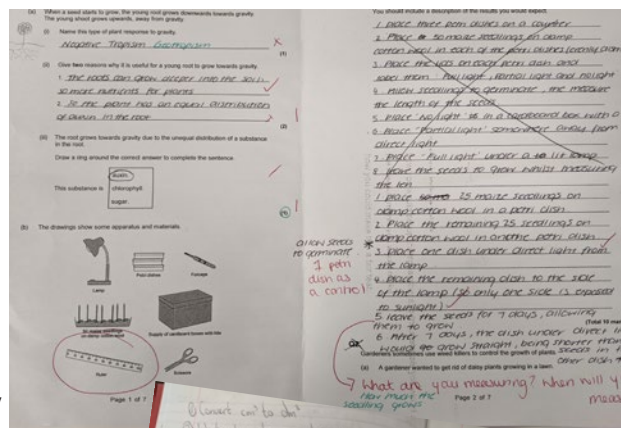 (a) When a seed starts to grow, the young root grows downwards towards gravity.
The young shoot grows upwards, away from gravity.
(i) Name this type of plant response to gravity.
Negative Tropism Geotropism
(1)
(ii) Give two reasons why it is useful for a young root to grow towards gravity.
1. the roots can grow deeper into the soil
so more nutrients for plants
2. so the plant has an equal distribution
of auxin in the root
1
(2)
(iii) The root grows towards gravity due to the unequal distribution of a substance
in the root.
Draw a ring around the correct answer to complete the sentence.
This substance is
auxin.
chlorophyll.
sugar.
1
(1)
(b) The drawings show some apparatus and materials.
Lamp
Petri dishes
Forceps
50 maize seedlings
on damp cotton wool
Supply of cardboard boxes with lids
Ruler
Scissors
Page 1 of 7
You should include a description of the results you would expect.
1 place three petri dishes on a counter
2. Place so maize seedlings on damp
cotton wool in each of the petri dishes
3. Place the lids on each petri dish and
label them 'Full light', 'partial light' and no light
4. Allow seedlings to germinate, the measure
the length of the seeds
5. place 'No light' in a cardboard box with a
6 Place 'Partial light' somewhere away from
direct light
7. Place 'Full light' under a lit lamp
8 leave the seeds to grow whilst measuring
the len
1 place 25 maize seedlings on
damp cotton wool in a petri dish
2. Place the remaining 25 seedlings on
damp cotton wool in another petri dish
3. place one dish under direct light from
the lamp
4. Place the remaining dish to the side
of the lamp (so only one side is exposed
to sunlight)
5. leave the seeds for 7 days, allowing
them to grow
6. After 7 days, the dish under direct
would grow straight, being shorter than
seeds in
other dish
allow seeds
to germinate
1 petri
dish as
a control
(Total 10
Gardeners sometimes use weed killers to control the growth of plants.
(a) A gardener wanted to get rid of daisy plants growing in a lawn.
What are you measuring? When will
How much the
seedling grows
Page 2 of 7
Convert cm³ to dm³